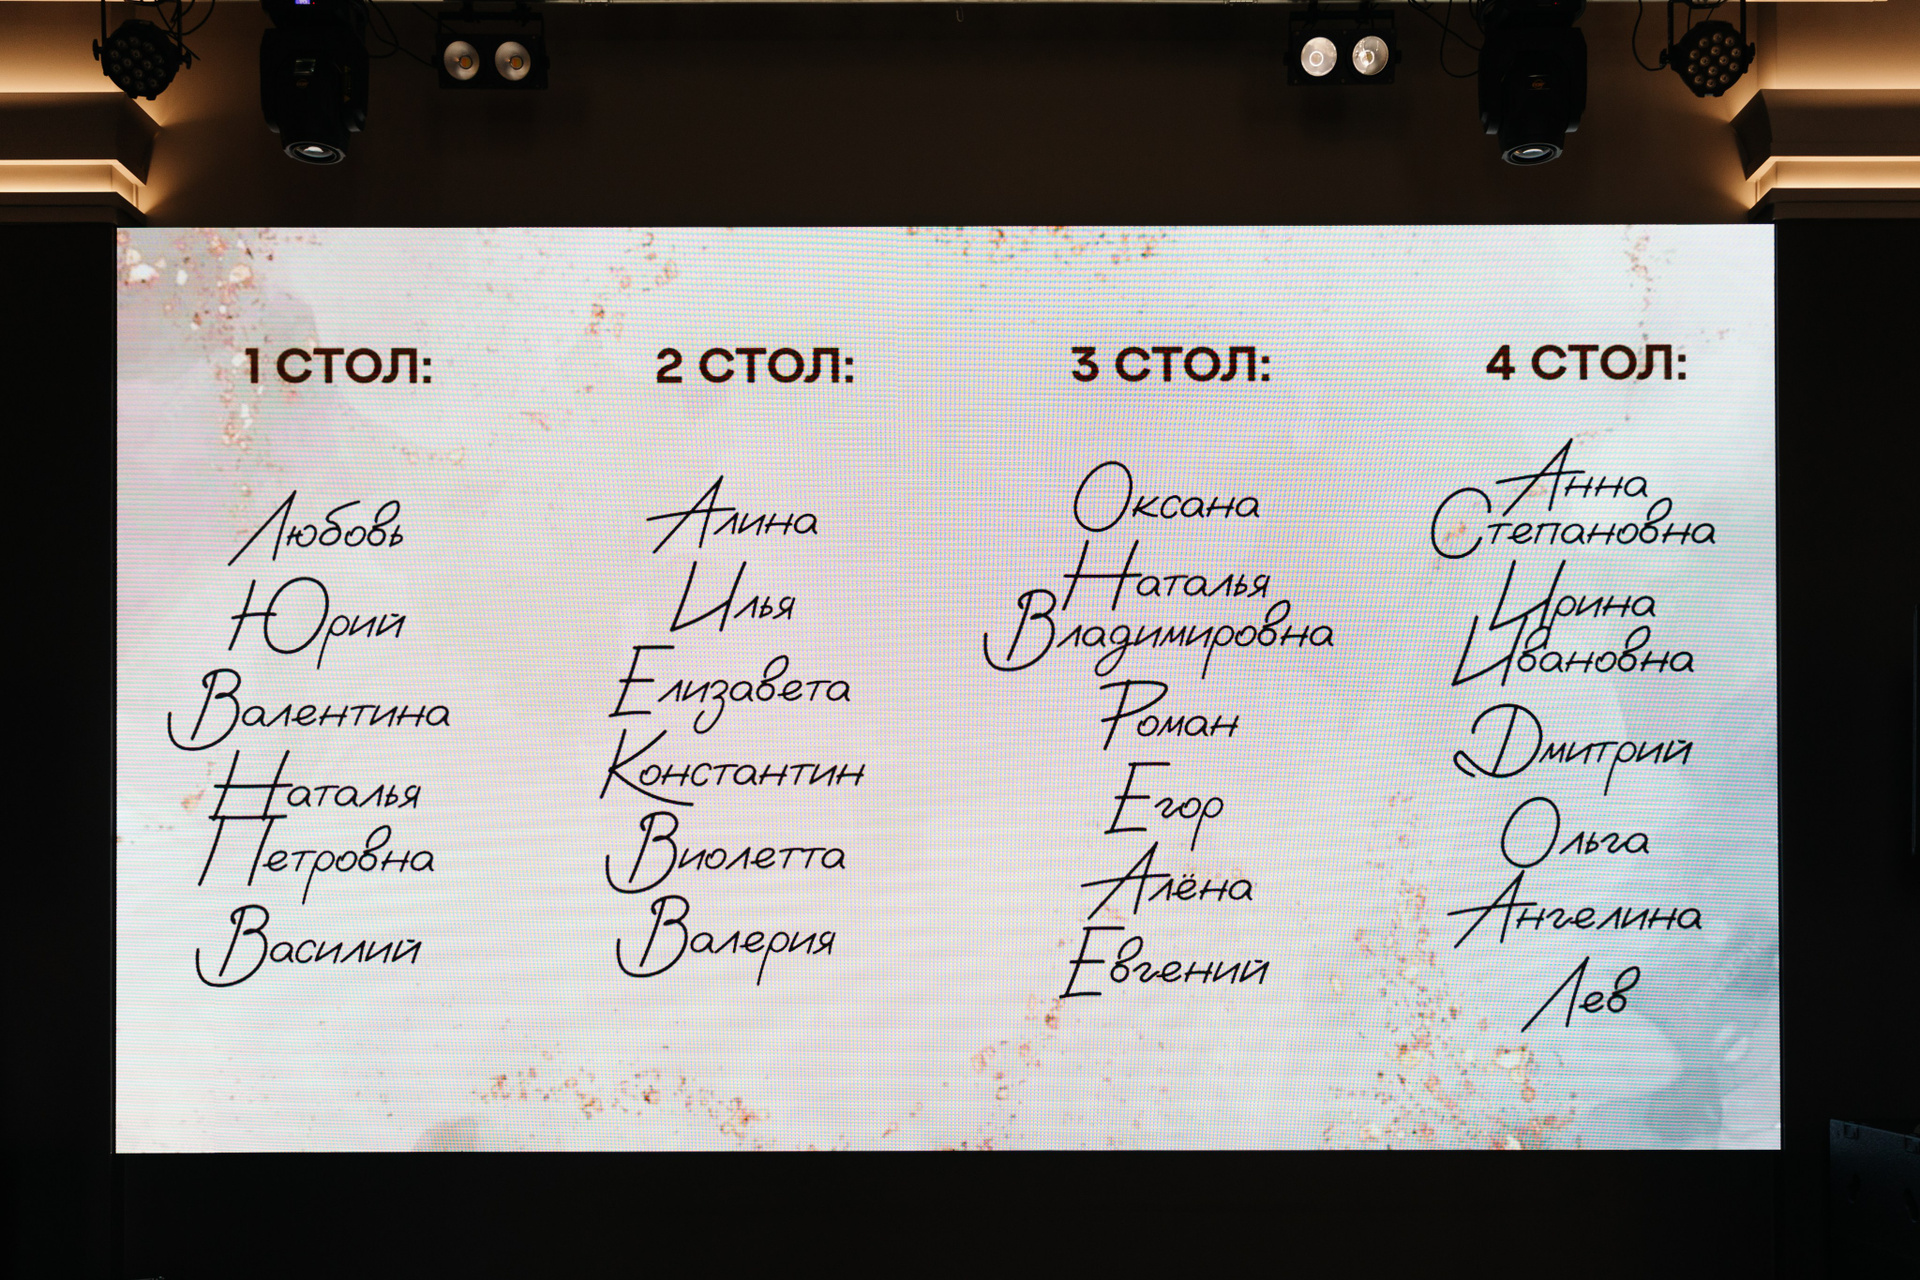 1 СТОЛ:
Любовь
Юрий
Валентина
Наталья
Петровна
Василий
2 СТОЛ:
Алина
Илья
Елизавета
Константин
Виолетта
Валерия
3 СТОЛ:
Оксана
Наталья
Владимировна
Роман
Егор
Алёна
Евгений
4 СТОЛ:
Анна
Степановна
Ирина
Ивановна
Дмитрий
Ольга
Ангелина
Лев